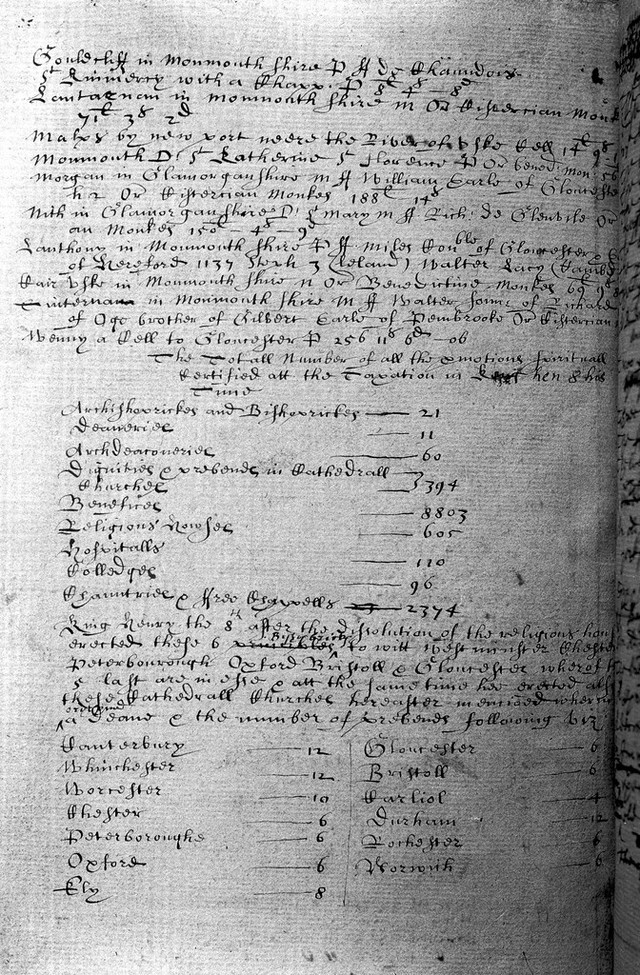 Gouldcliff in Monmouth shire P ff de Chaundois
St Kinmercy with a Chapp. P 8l 4s — 8d
Lantarnam in Monmouth shire M Or Cistercian Monk
71l 3s 2d
Malps by new port neere the River of Vske Cell 14l 9s
Monmouth D St Katherine St Florence P Or bened: Mon 56
Morgan in Glamorganshire M ff William Earle of Gloucester
h 2 Or Cistercian Monkes 188l 14s
Nith in Glamorganshire D St Mary M ff Rich: de Glenvile Or
an Monkes 150l 4s — 9d
Lanthony in Monmouth shire P ff Miles Con ble of Gloucester &
of Hereford 1137 Steph 3 (Leland) Walter Lacy
Kair Vske in Monmouth shire n Or Benedictine Monkes 69l 9s
Tinternam in Monmouth shire M ff Walter of Richard
of Oge brother of Gilbert Earle of Pembrooke Or Cistercian
Wenny a Cell to Gloucester P 256 11s 6d — 06
The Totall Number of all the pmotions spirituall
Certified att the Taxation in hen 8 his
Time
Archishoprickes and Bishoprickes — 21
Deaneries — 11
Archdeaconeries — 60
Dignities & prebends in Cathedrall
Churches — 394
Benefices — 8803
Religious Howses — 605
Hospitalls — 110
Colledges — 96
Chauntries & free Chappells — 2374
King Henry the 8th after the dissolution of the religious hous
erected these 6 Bishopricks to witt Westminster Chester
Peterbourough Oxford Bristoll & Gloucester wherof th
5 last are in esse & att the same time hee erected also
these Cathedrall Churches hereafter menconed wherein
a Deane & the number of prebends following viz
Canterbury — 12
Whinchester — 12
Worcester — 10
Chester — 6
Peterboroughe — 6
Oxford — 6
Ely — 8
Gloucester — 6
Bristoll — 6
Carliol — 4
Durham — 12
Rochester — 6
Norwich — 6